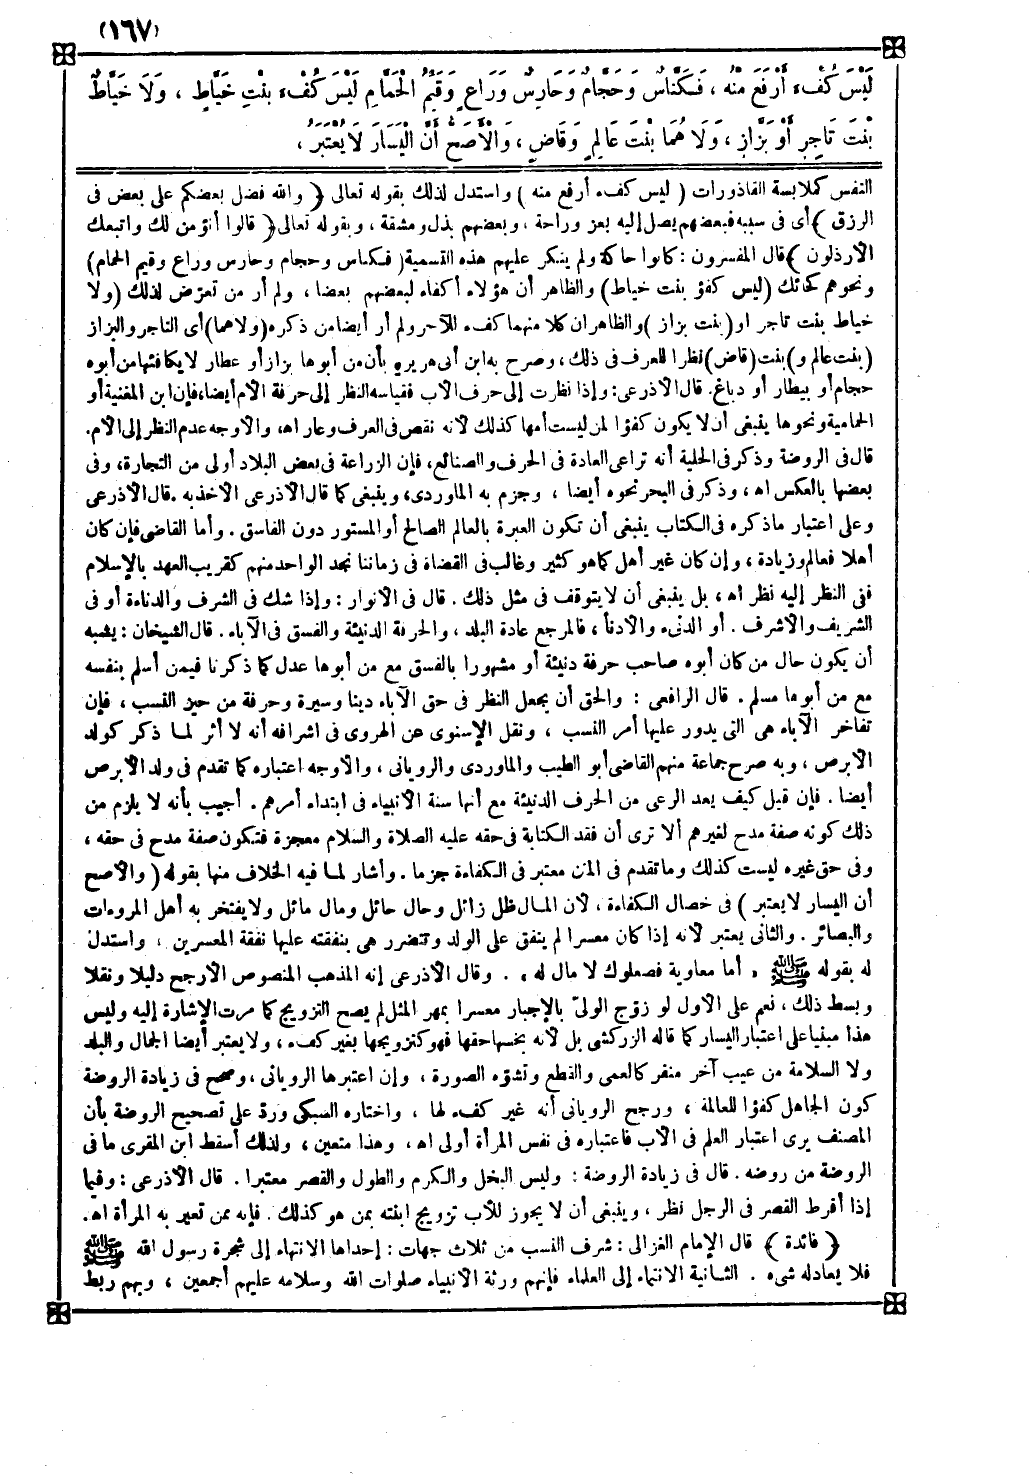 (١٦٧)
لَيْسَ كُفْءَ أَرْفَعَ مِنْهُ ، فَكَنَّاسٌ وَحَجَّامٌ وَحَارِسٌ وَرَاعٍ وَقَيِّمُ الْحَمَّامِ لَيْسَ كُفْءَ بِنْتِ خَيَّاطٍ ، وَلَا خَيَّاطٌ
بِنْتَ تَاجِرٍ أَوْ بَزَّازٍ ، وَلَا هُمَا بِنْتَ عَالِمٍ وَقَاضٍ ، وَالْأَصَحُّ أَنَّ الْيَسَارَ لَا يُعْتَبَرُ ،
النفس كملابسة القاذورات ( ليس كفء أرفع منه ) واستدل لذلك بقوله تعالى ﴿ والله فضل بعضكم على بعض فى
الرزق ﴾ أى فى سببه فبعضهم يصل إليه بعز وراحة ، وبعضهم بذل ومشقة ، وبقوله تعالى ﴿ قالوا أنؤمن لك واتبعك
الأرذلون ﴾ قال المفسرون : كانوا حاكة ولم ينكر عليهم هذه التسمية ( فكناس وحجام وحارس وراع وقيم الحمام )
ونحوهم كحائك (ليس كفؤ بنت خياط) والظاهر أن هؤلاء أكفاء لبعضهم بعضا ، ولم أر من تعرّض لذلك (ولا
خياط بنت تاجر او ( بنت بزاز ) والظاهر ان كلا منهما كفء للآخر ولم أر أيضا من ذكره (ولا هما) أى التاجر والبزاز
(بنت عالم و) بنت (قاض) نظرا للعرف فى ذلك ، وصرح به ابن أبى هريرة بأن من أبوها بزاز أو عطار لا يكافئها من أبوه
حجام أو بيطار أو دباغ. قال الأذرعى : وإذا نظرت إلى حرف الأب فقياسه النظر إلى حرفة الأم أيضا، فإن ابن المغنية أو
الحمامية ونحوها ينبغى أن لا يكون كفؤا لمن ليست أمها كذلك لأنه نقص فى العرف وعار اه، والأوجه عدم النظر إلى الأم.
قال فى الروضة وذكر فى الحلية أنه تراعى العادة فى الحرف والصنائع، فإن الزراعة فى بعض البلاد أولى من التجارة، وفى
بعضها بالعكس اه ، وذكر فى البحر نحوه أيضا ، وجزم به الماوردى، وينبغى كما قال الأذرعى الأخذ به . قال الأذرعى
وعلى اعتبار ما ذكره فى الكتاب ينبغى أن تكون العبرة بالعالم الصالح أو المستور دون الفاسق . وأما القاضى فإن كان
أهلا فعالم وزيادة ، وإن كان غير أهل كما هو كثير وغالب فى القضاة فى زماننا نجد الواحد منهم كقريب العهد بالإسلام
ففى النظر إليه نظر اه ، بل ينبغى أن لا يتوقف فى مثل ذلك . قال فى الأنوار : وإذا شك فى الشرف والدناءة أو فى
الشريف والأشرف . أو الدنىء والأدنأ ، فالمرجع عادة البلد ، والحرفة الدنيئة والفسق فى الآباء. قال الشيخان : يشبه
أن يكون حال من كان أبوه صاحب حرفة دنيئة أو مشهورا بالفسق مع من أبوها عدل كما ذكرنا فيمن أسلم بنفسه
مع من أبوها مسلم . قال الرافعى : والحق أن يجعل النظر فى حق الآباء دينا وسيرة وحرفة من حيز النسب ، فإن
تفاخر الآباء هى التى يدور عليها أمر النسب ، ونقل الإسنوى عن الهروى فى اشرافه أنه لا أثر لما ذكر كولد
الأبرص ، وبه صرح جماعة منهم القاضى أبو الطيب والماوردى والرويانى ، والأوجه اعتباره كما تقدم فى ولد الأبرص
أيضا . فإن قيل كيف يعد الرعى من الحرف الدنيئة مع أنها سنة الأنبياء فى ابتداء أمرهم . أجيب بأنه لا يلزم من
ذلك كونه صفة مدح لغيرهم ألا ترى أن فقد الكتابة فى حقه عليه الصلاة والسلام معجزة فتكون صفة مدح فى حقه ،
وفى حق غيره ليست كذلك وما تقدم فى المتن معتبر فى الكفاءة جزما . وأشار لما فيه الخلاف منها بقوله ( والأصح
أن اليسار لا يعتبر ) فى خصال الكفاءة ، لأن المال ظل زائل وحال حائل ومال مائل ولا يفتخر به أهل المروءات
والبصائر . والثانى يعتبر لأنه إذا كان معسرا لم ينفق على الولد وتتضرر هى بنفقته عليها نفقة المعسرين ، واستدل
له بقوله ﷺ « أما معاوية فصعلوك لا مال له » . وقال الأذرعى إنه المذهب المنصوص الأرجح دليلا ونقلا
وبسط ذلك ، نعم على الأول لو زوّج الولىّ بالإجبار معسرا بمهر المثل لم يصح التزويج كما مرت الإشارة إليه وليس
هذا مبنيا على اعتبار اليسار كما قاله الزركشى بل لأنه بخسها حقها فهو كتزويجها بغير كفء ، ولا يعتبر أيضا الجمال والبلد
ولا السلامة من عيب آخر منفر كالعمى والقطع وتشوّه الصورة ، وإن اعتبرها الرويانى ، وصحح فى زيادة الروضة
كون الجاهل كفؤا للعالمة ، ورجح الرويانى أنه غير كفء لها ، واختاره السبكى وردّ على تصحيح الروضة بأن
المصنف يرى اعتبار العلم فى الأب فاعتباره فى نفس المرأة أولى اه ، وهذا متعين ، ولذلك أسقط ابن المقرى ما فى
الروضة من روضه . قال فى زيادة الروضة : وليس البخل والكرم والطول والقصر معتبرا . قال الأذرعى : وفيما
إذا أفرط القصر فى الرجل نظر ، وينبغى أن لا يجوز للأب تزويج ابنته بمن هو كذلك . فإنه ممن تعير به المرأة اه.
﴿ فائدة ﴾ قال الإمام الغزالى : شرف النسب من ثلاث جهات : إحداها الانتهاء إلى شجرة رسول الله ﷺ
فلا يعادله شىء . الثانية الانتماء إلى العلماء فإنهم ورثة الأنبياء صلوات الله وسلامه عليهم أجمعين ، وبهم ربط